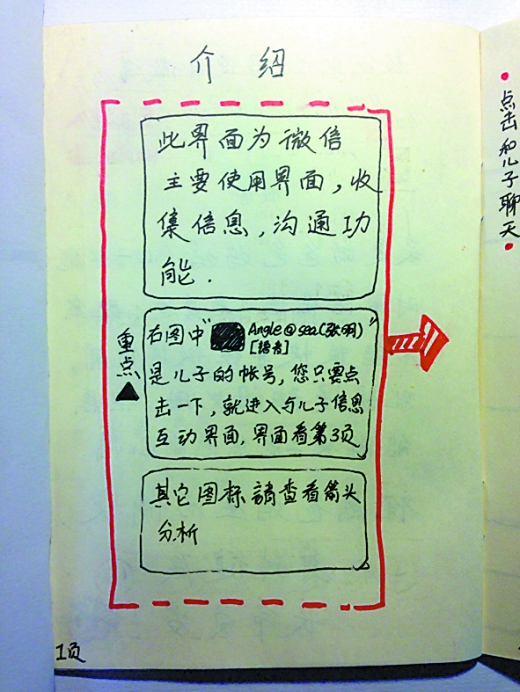 介绍
此界面为微信
主要使用界面，收
集信息，沟通功
能.
重点
右图中“ Angle@sea(张明)”
是儿子的帐号，您只要点
击一下，就进入与儿子信息
互动界面，界面看第3页
其它图标请查看箭头
分析
1页
点击和儿子聊天